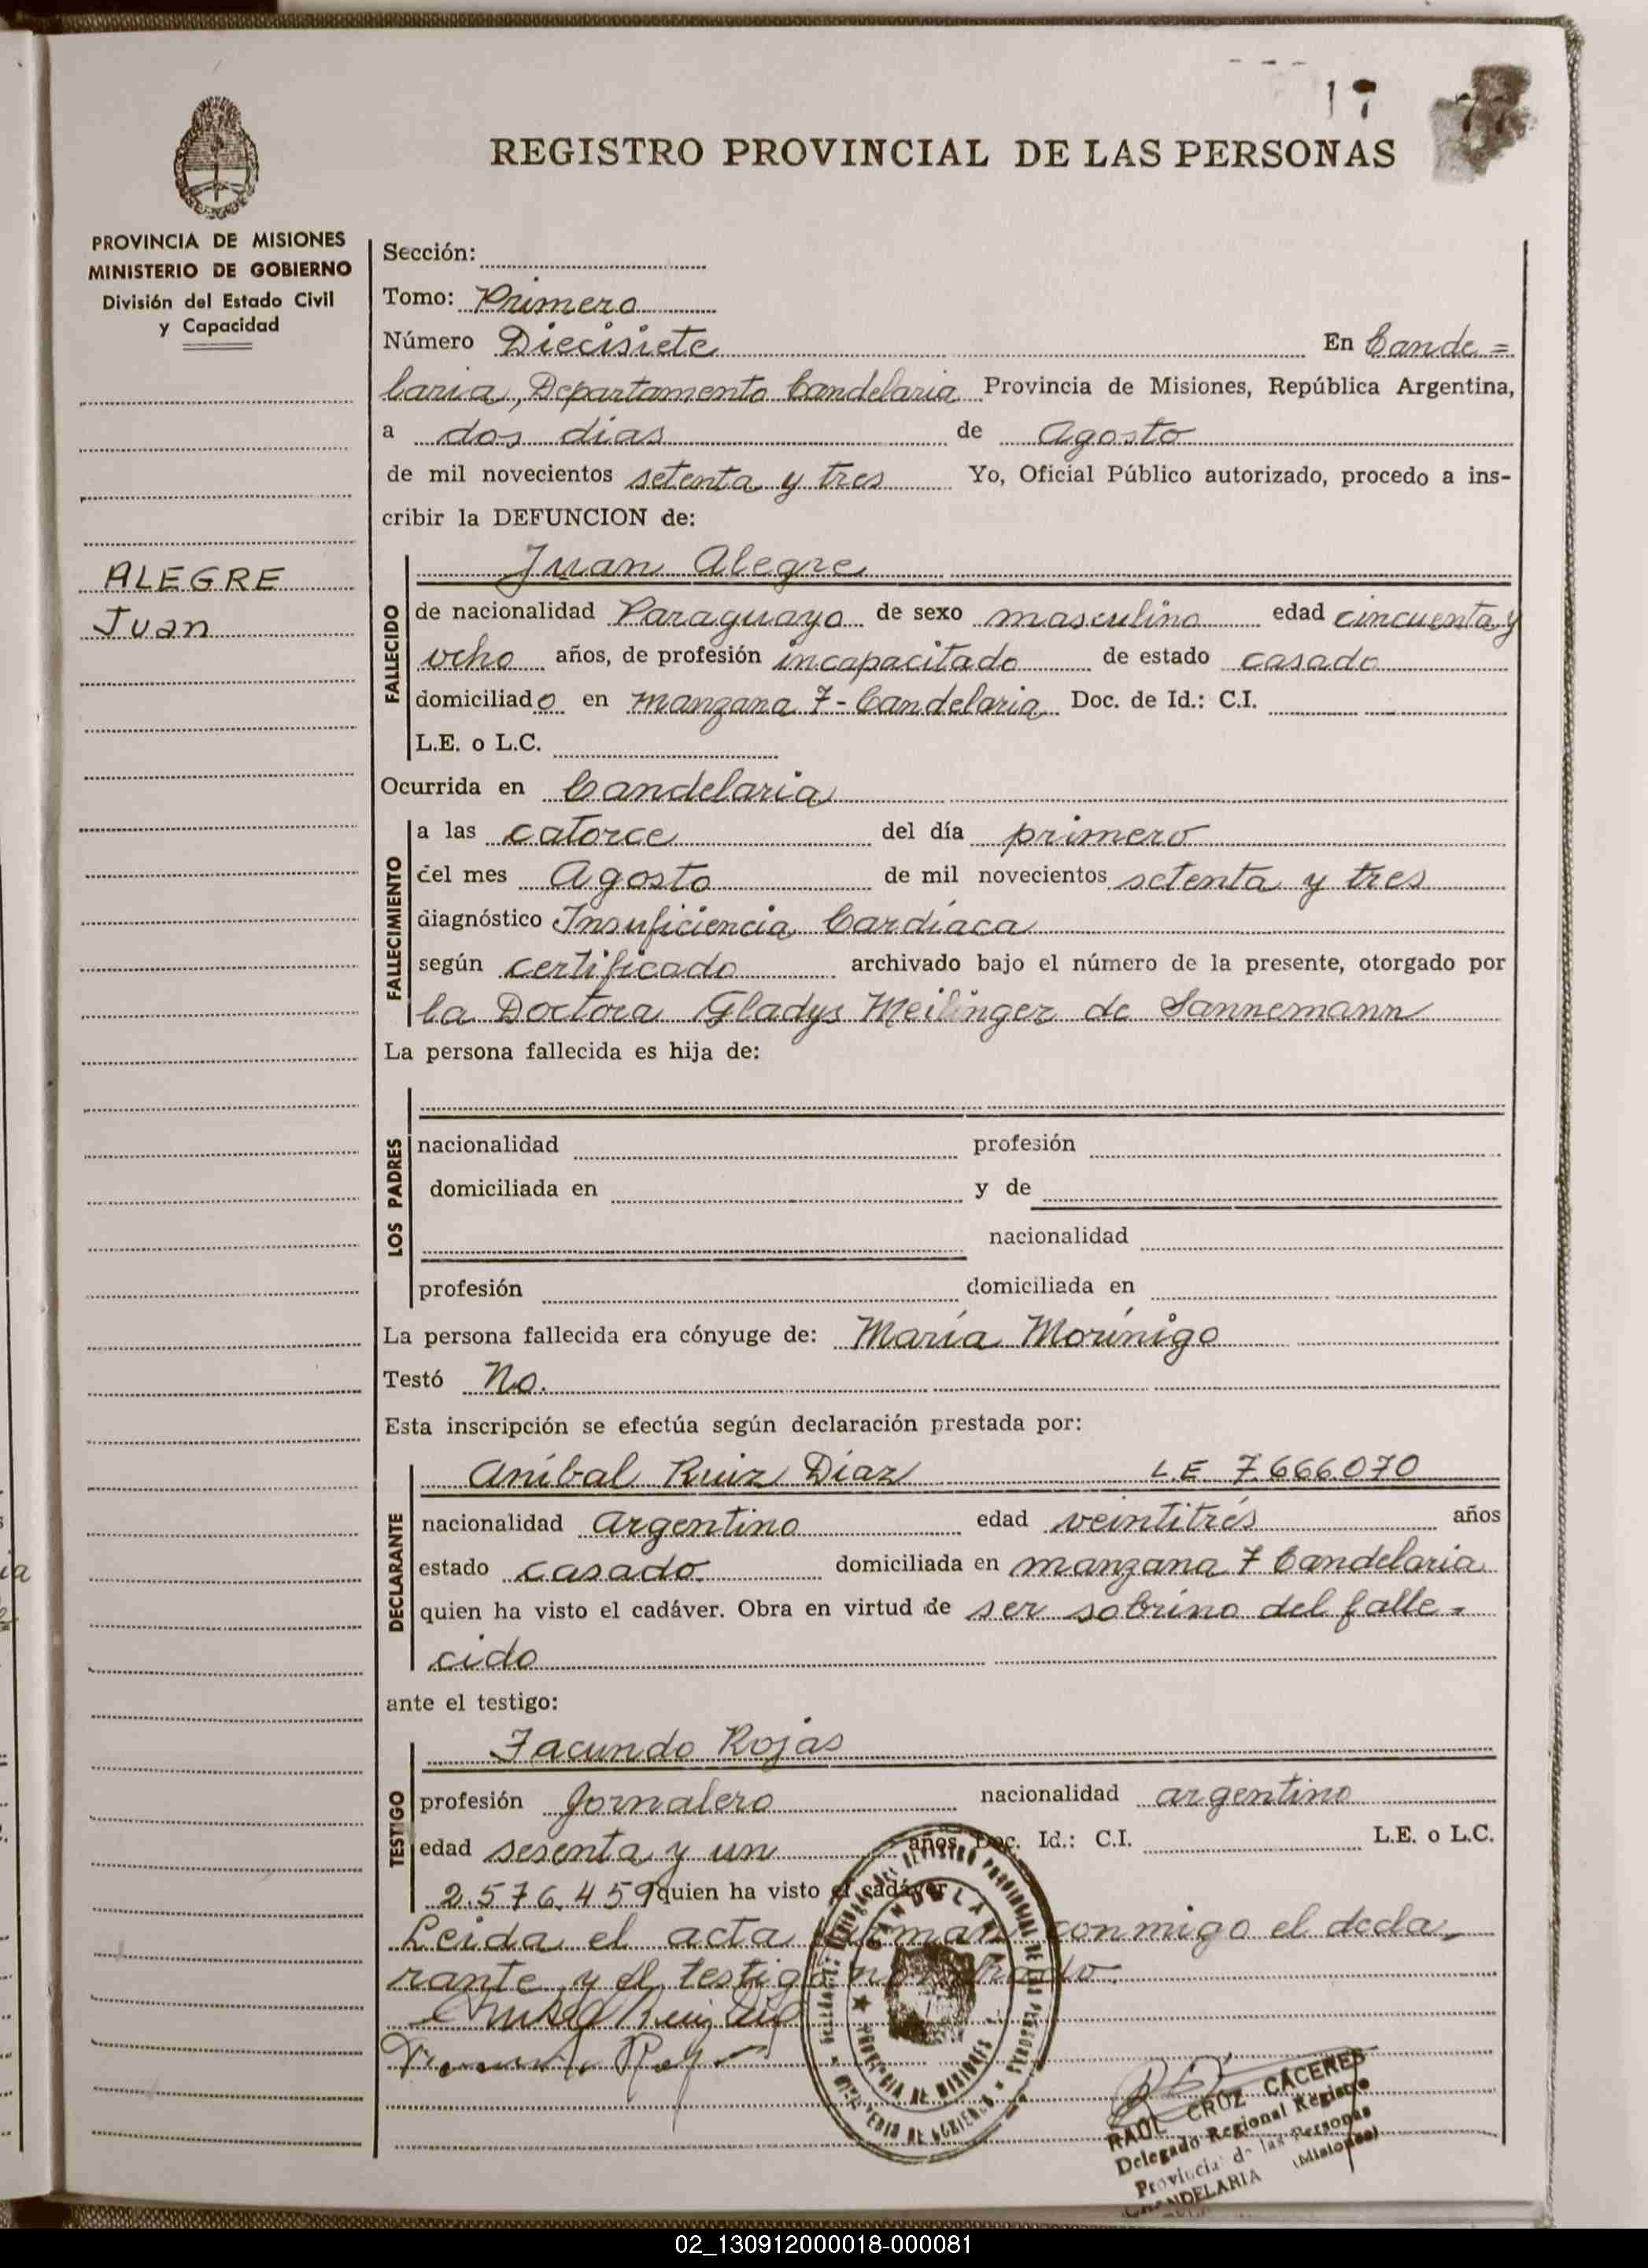 17
REGISTRO PROVINCIAL DE LAS PERSONAS
PROVINCIA DE MISIONES
MINISTERIO DE GOBIERNO
División del Estado Civil
y Capacidad
ALEGRE
Juan
Sección:
Tomo: Primero
Número Diecisiete En Cande=
laria, Departamento Candelaria Provincia de Misiones, República Argentina,
a dos dias de Agosto
de mil novecientos setenta y tres Yo, Oficial Público autorizado, procedo a ins-
cribir la DEFUNCION de:
Juan Alegre
FALLECIDO
de nacionalidad Paraguayo de sexo masculino edad cincuenta y
ocho años, de profesión incapacitado de estado casado
domiciliado en manzana 7 - Candelaria Doc. de Id.: C.I.
L.E. o L.C.
Ocurrida en Candelaria
FALLECIMIENTO
a las catorce del día primero
del mes Agosto de mil novecientos setenta y tres
diagnóstico Insuficiencia Cardíaca
según certificado archivado bajo el número de la presente, otorgado por
la Doctora Gladys Meilinger de Sannemann
La persona fallecida es hija de:
LOS PADRES
nacionalidad profesión
domiciliada en y de
nacionalidad
profesión domiciliada en
La persona fallecida era cónyuge de: María Morínigo
Testó No.
Esta inscripción se efectúa según declaración prestada por:
Aníbal Ruiz Díaz L.E 7.666.070
DECLARANTE
nacionalidad argentino edad veintitrés años
estado casado. domiciliada en manzana 7 Candelaria
quien ha visto el cadáver. Obra en virtud de ser sobrino del falle-
cido
ante el testigo:
Facundo Rojas
TESTIGO
profesión Jornalero nacionalidad argentino
edad sesenta y un años, Doc. Id.: C.I. L.E. o L.C.
2.576.459 quien ha visto el cadáver
Leida el acta firman conmigo el decla-
rante y el testigo nombrado.
RAUL CRUZ CACERES
Delegado Regional Registro
Provincial de las Personas
CANDELARIA (Misiones)
CANDELARIA
PROVINCIA DE MISIONES
02_130912000018-000081